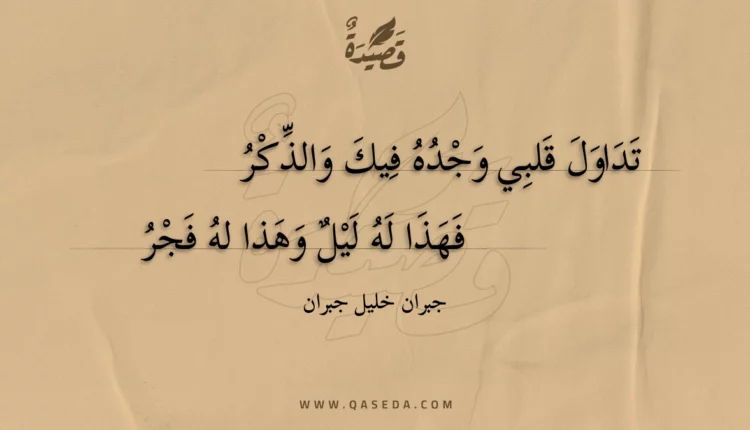 قَصِيْدَةٌ
تَدَاوَلَ قَلبِي وَجْدُهُ فِيكَ وَالذِّكْرُ
فَهَذَا لَهُ لَيْلٌ وَهَذا لهُ فَجْرُ
جبران خليل جبران
WWW.QASEDA.COM